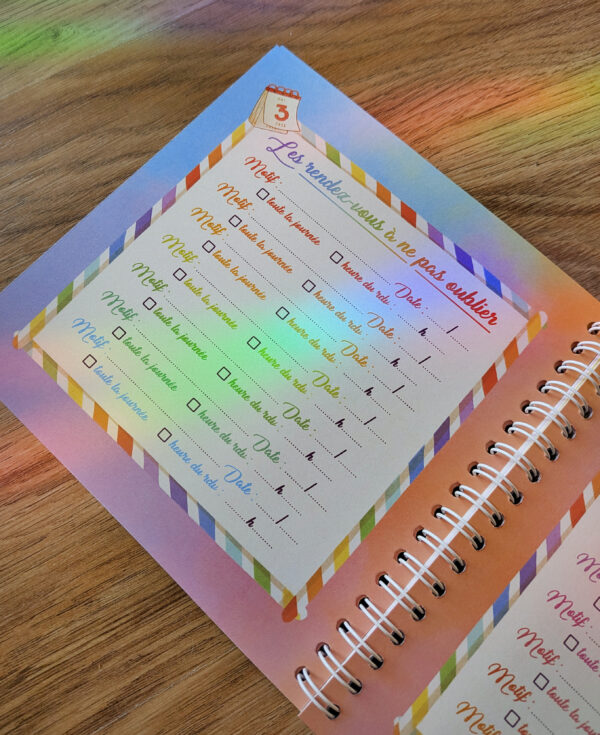 3
Les rendez-vous à ne pas oublier
Motif : Date : /
toute la journée heure du rdv h
Motif : Date : /
toute la journée heure du rdv h
Motif : Date : /
toute la journée heure du rdv h
Motif : Date : /
toute la journée heure du rdv h
Motif : Date : /
toute la journée heure du rdv h
Motif : Date : /
toute la journée heure du rdv h
Motif : Date : /
toute la journée heure du rdv h
Motif :
Motif :
Motif :
toute
Motif :
toute
Motif :
toute